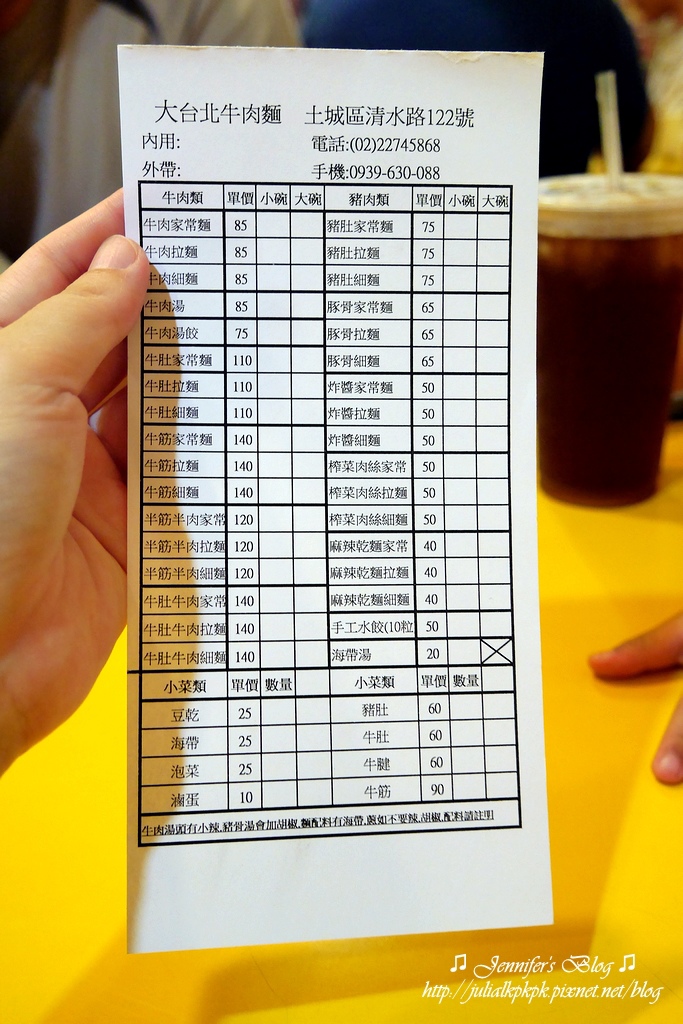 大台北牛肉麵 土城區清水路122號
內用: 電話:(02)22745868
外帶: 手機:0939-630-088
牛肉類 單價 小碗 大碗 豬肉類 單價 小碗 大碗
牛肉家常麵 85 豬肚家常麵 75
牛肉拉麵 85 豬肚拉麵 75
牛肉細麵 85 豬肚細麵 75
牛肉湯 85 豚骨家常麵 65
牛肉湯餃 75 豚骨拉麵 65
牛肚家常麵 110 豚骨細麵 65
牛肚拉麵 110 炸醬家常麵 50
牛肚細麵 110 炸醬拉麵 50
牛筋家常麵 140 炸醬細麵 50
牛筋拉麵 140 榨菜肉絲家常 50
牛筋細麵 140 榨菜肉絲拉麵 50
半筋半肉家常 120 榨菜肉絲細麵 50
半筋半肉拉麵 120 麻辣乾麵家常 40
半筋半肉細麵 120 麻辣乾麵拉麵 40
牛肚牛肉家常 140 麻辣乾麵細麵 40
牛肚牛肉拉麵 140 手工水餃(10粒 50
牛肚牛肉細麵 140 海帶湯 20
小菜類 單價 數量 小菜類 單價 數量
豆乾 25 豬肚 60
海帶 25 牛肚 60
泡菜 25 牛腱 60
滷蛋 10 牛筋 90
牛肉湯頭有小辣,豬骨湯會加胡椒,麵配料有海帶,蔥如不要辣,胡椒,配料請註明
♫ Jennifer's Blog ♫
http://julialkpkpk.pixnet.net/blog